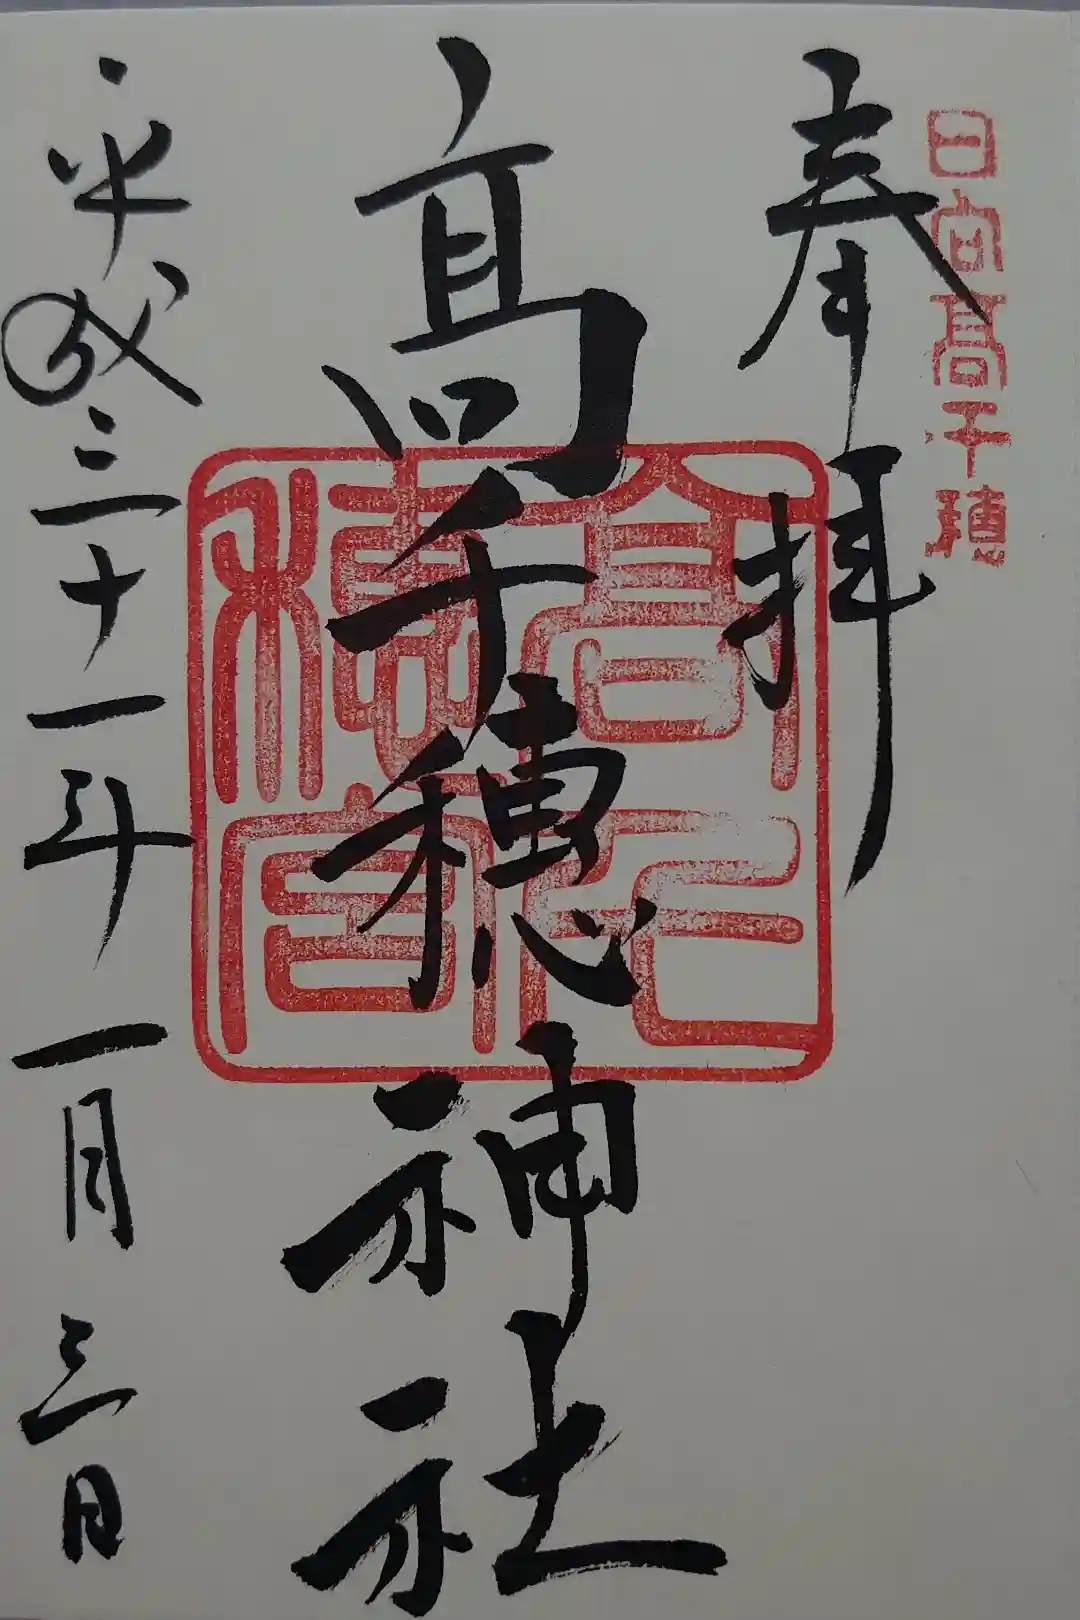 日向高千穂
奉拝
高千穂神社
平成三十一年一月三日